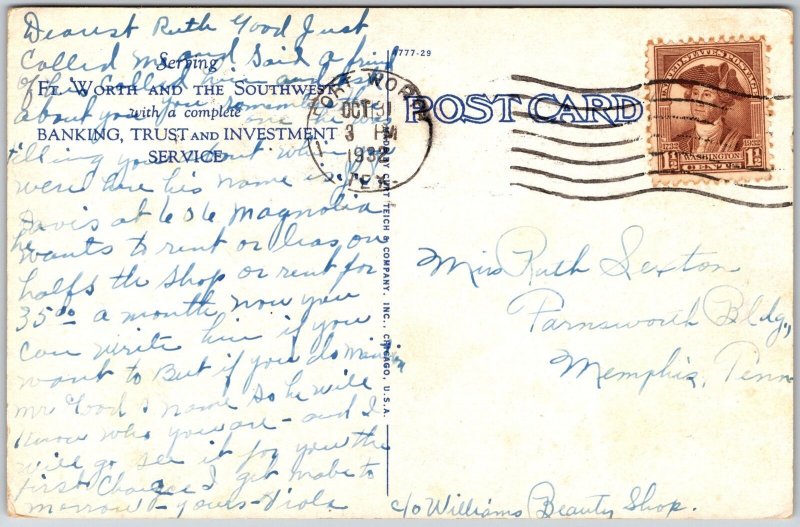 Dearest Ruth Good Just
Called me and Said a frind
of his Called him and ask
about you you remember
one he was
telling you about when you
were here his name is
Davis at 606 Magnolia
he wants to rent or leas on
halfs the Shop or rent for
35⁰⁰ a month now you
can write him if you
want to But if you do mension
mr Good s name So he will
Know who you are – and I
will go see it for you the
first Chance I get mabe to
morrow – yours – Viola
Serving
FT. WORTH AND THE SOUTHWEST
with a complete
BANKING, TRUST AND INVESTMENT
SERVICE
4777-29
CURT TEICH & COMPANY, INC., CHICAGO, U.S.A.
FORT WORTH
OCT 31
3 PM
1932
TEX.
POST CARD
UNITED STATES POSTAGE
1732 1932
WASHINGTON
1½ CENTS 1½
Miss Ruth Sexton
Farnsworth Bldg,
Memphis, Tenn
c/o Williams Beauty Shop.